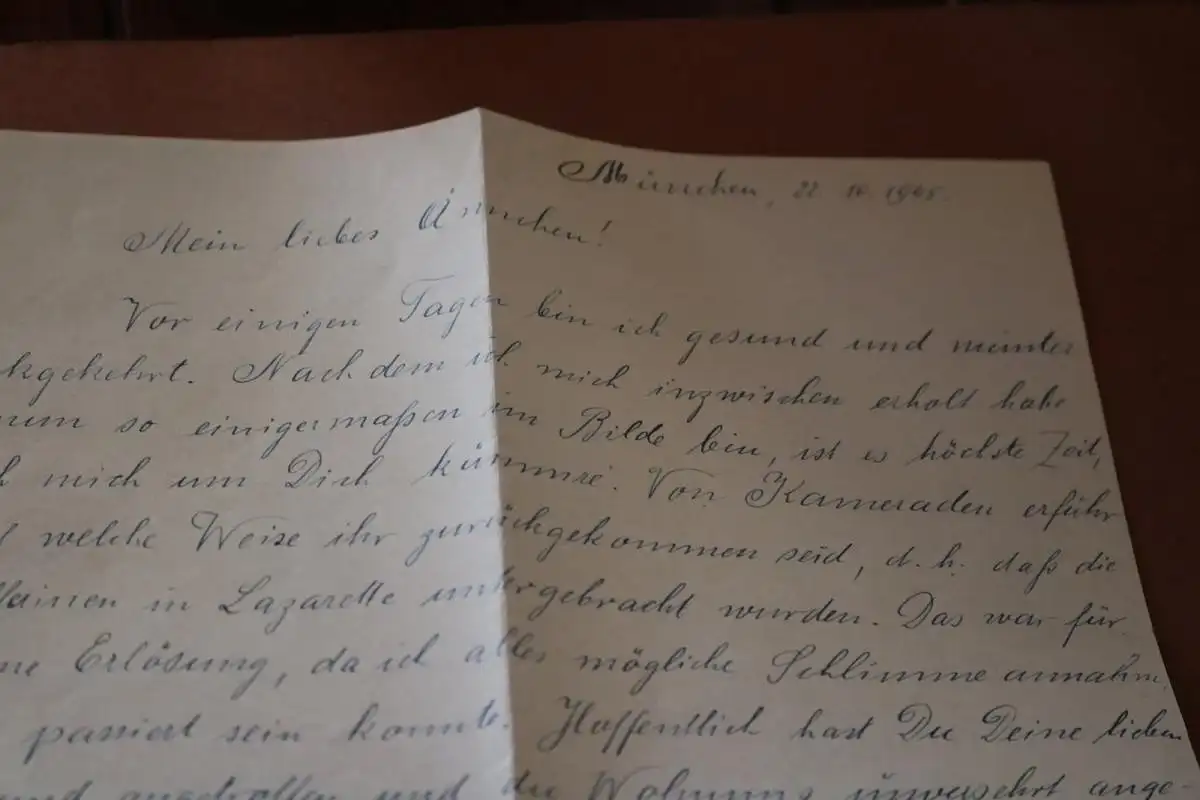 München, 22. 10. 1945.
Mein liebes Ännchen!
Vor einigen Tagen bin ich gesund und munter
kgekehrt. Nachdem ich mich inzwischen erholt habe
nun so einigermaßen im Bilde bin, ist es höchste Zeit,
h mich um Dich kümmre. Von Kameraden erfuhr
welche Weise ihr zurückgekommen seid, d. h. daß die
in Lazarette untergebracht wurden. Das war für
ne Erlösung, da ich alles mögliche Schlimme annahm,
passiert sein konnte. Hoffentlich hast Du Deine lieben
und angetroffen und die Wohnung unversehrt ange-